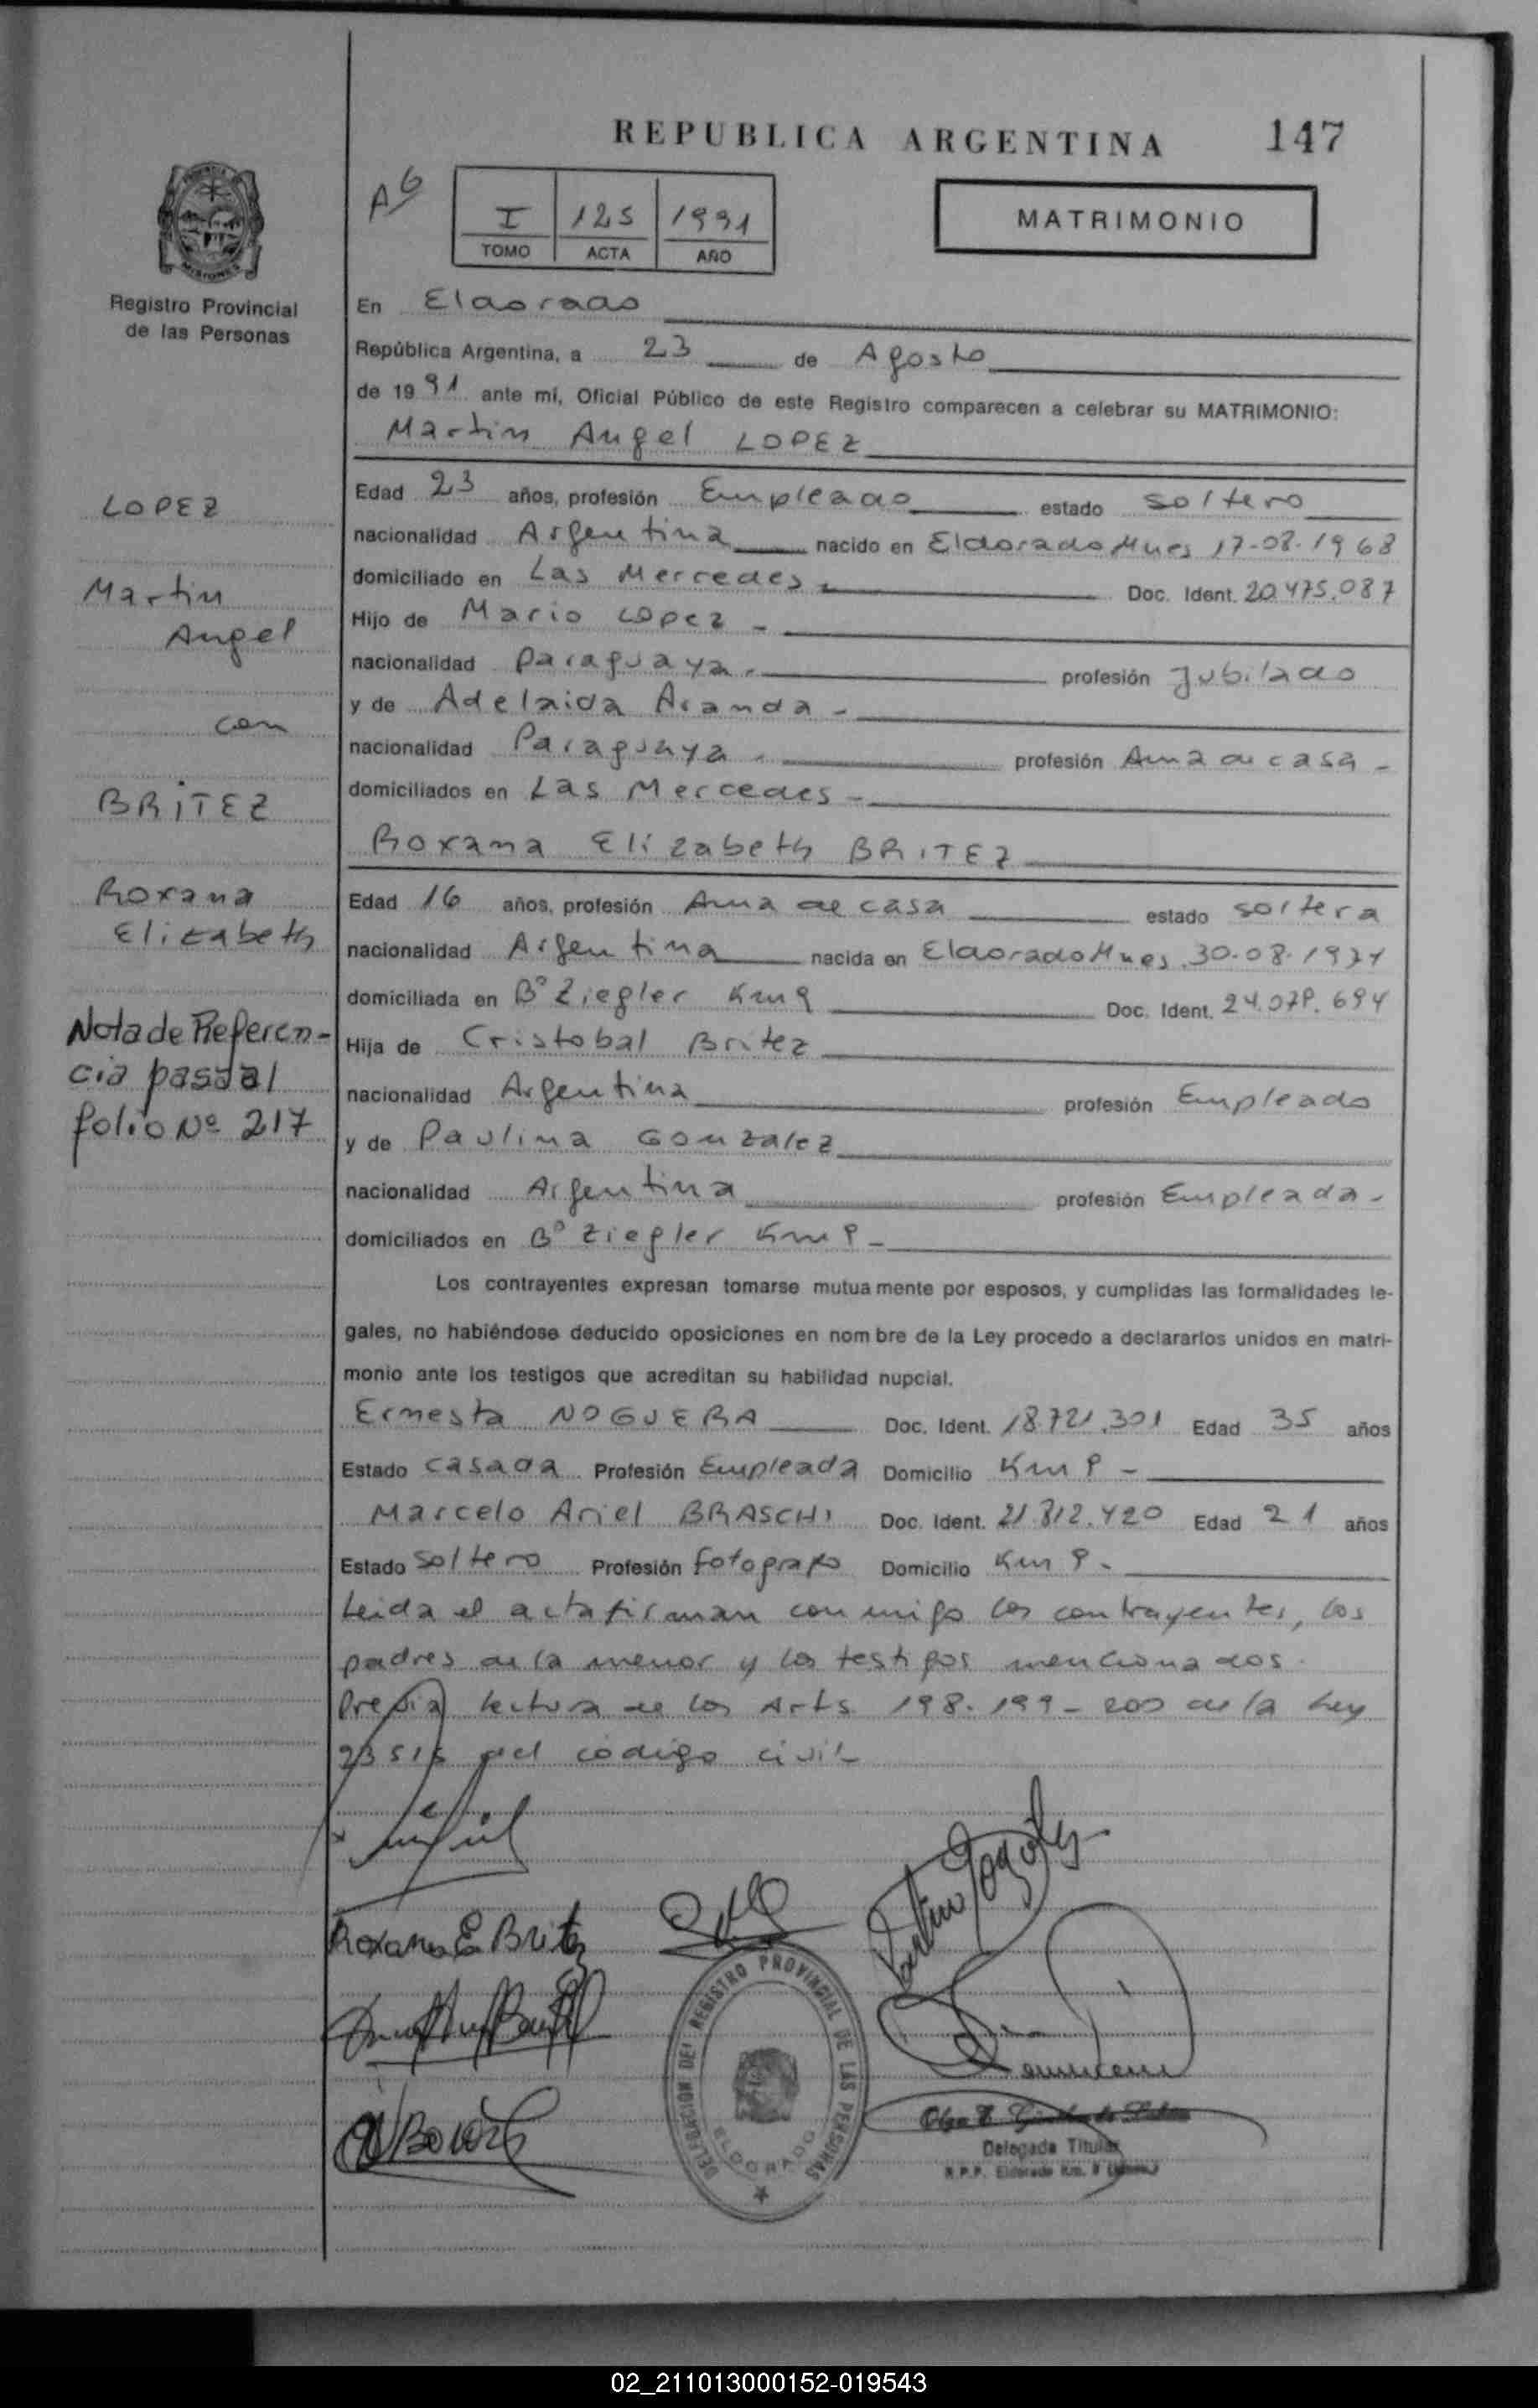 REPUBLICA ARGENTINA 147
A6
I 125 1991
TOMO ACTA AÑO
MATRIMONIO
MISIONES
Registro Provincial
de las Personas
En Eldorado
República Argentina, a 23 de Agosto
de 1991 ante mí, Oficial Público de este Registro comparecen a celebrar su MATRIMONIO:
Martin Angel LOPEZ
Edad 23 años, profesión Empleado estado soltero
nacionalidad Argentina nacido en Eldorado Mnes 17-08-1968
domiciliado en Las Mercedes Doc. Ident. 20.475.087
Hijo de Mario Lopez -
nacionalidad Paraguaya. profesión Jubilado
y de Adelaida Aranda -
nacionalidad Paraguaya profesión Ama de casa -
domiciliados en Las Mercedes -
Roxana Elizabeth BRITEZ
Edad 16 años, profesión Ama de casa estado soltera
nacionalidad Argentina nacida en Eldorado Mnes 30-08-1974
domiciliada en Bº Ziegler Km 9 Doc. Ident. 24.078.694
Hija de Cristobal Britez
nacionalidad Argentina profesión Empleado
y de Paulina Gonzalez
nacionalidad Argentina profesión Empleada -
domiciliados en Bº Ziegler Km 9 -
Los contrayentes expresan tomarse mutuamente por esposos, y cumplidas las formalidades le-
gales, no habiéndose deducido oposiciones en nombre de la Ley procedo a declararlos unidos en matri-
monio ante los testigos que acreditan su habilidad nupcial.
Ernesta NOGUERA Doc. Ident. 18.721.301 Edad 35 años
Estado casada Profesión Empleada Domicilio Km 9 -
Marcelo Ariel BRASCHI Doc. Ident. 21.812.420 Edad 21 años
Estado soltero Profesión fotografo Domicilio Km 9 -
Leida el acta firman conmigo los contrayentes, los
padres de la menor y los testigos mencionados.
Previa lectura de los Arts 198-199-200 de la Ley
23515 del codigo civil
LOPEZ
Martin
Angel
con
BRITEZ
Roxana
Elizabeth
Nota de Referen-
cia pasa al
folio Nº 217
Roxana E Britez
DELEGACION DEL REGISTRO PROVINCIAL DE LAS PERSONAS
ELDORADO
Delegada Titular
R.P.P. Eldorado Km. 9
02_211013000152-019543